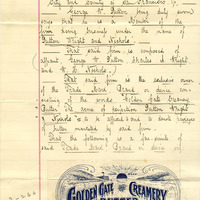 City and County of San Francisco ss.
George W. Patton being duly sworn
says that he is a member of the
firm doing business under the name of
Patton, Wright and Nichols.
That said firm is composed of
affiant, George W. Patton, Charles S. Wright
and Nichols.
That said firm is the exclusive owner
of the Trade Mark Brand or device con-
sisting of the words "Golden Gate Creamery
Butter
Nichols" is to be affixed to and to brand packages
of butter manufactured by said firm.
That the following is a fac simile of
said Trade Mark Brand or device
GOLDEN GATE CREAMERY
BUTTER